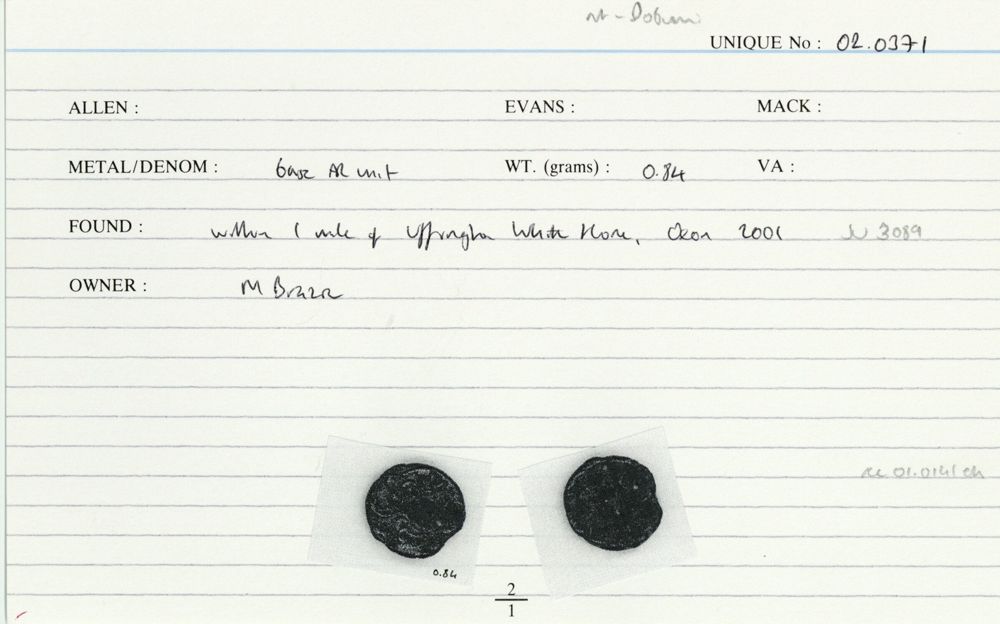 Dobunni
UNIQUE No : 02.0371
ALLEN : EVANS : MACK :
METAL/DENOM : base AR unit WT. (grams) : 0.84 VA :
FOUND : within 1 mile of Uffington White Horse, Oxon 2001 3089
OWNER : M
01.0141
0.84
2
1